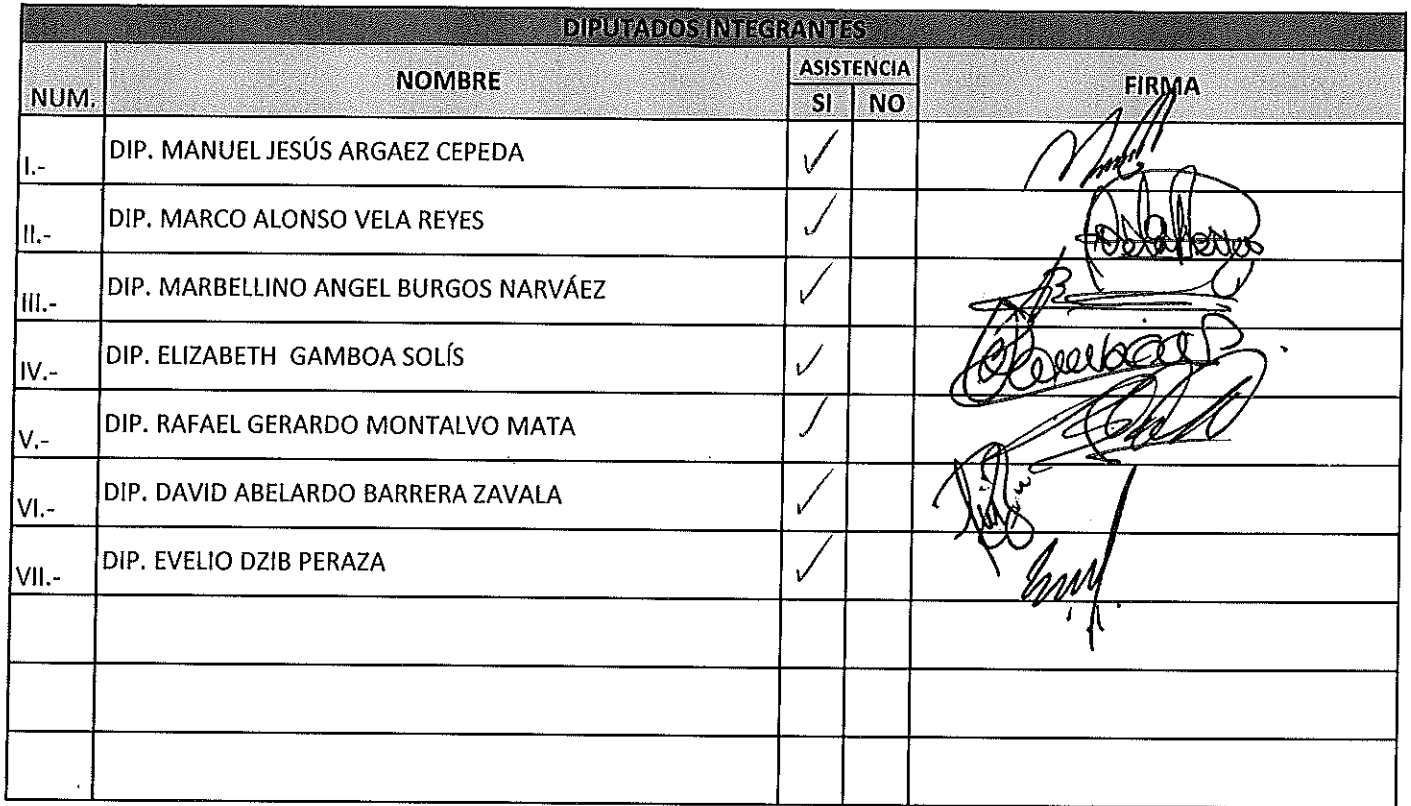 DIPUTADOS INTEGRANTES
NUM. NOMBRE ASISTENCIA FIRMA
SI NO
I.- DIP. MANUEL JESÚS ARGAEZ CEPEDA ✓
II.- DIP. MARCO ALONSO VELA REYES ✓
III.- DIP. MARBELLINO ANGEL BURGOS NARVÁEZ ✓
IV.- DIP. ELIZABETH GAMBOA SOLÍS ✓
V.- DIP. RAFAEL GERARDO MONTALVO MATA ✓
VI.- DIP. DAVID ABELARDO BARRERA ZAVALA ✓
VII.- DIP. EVELIO DZIB PERAZA ✓